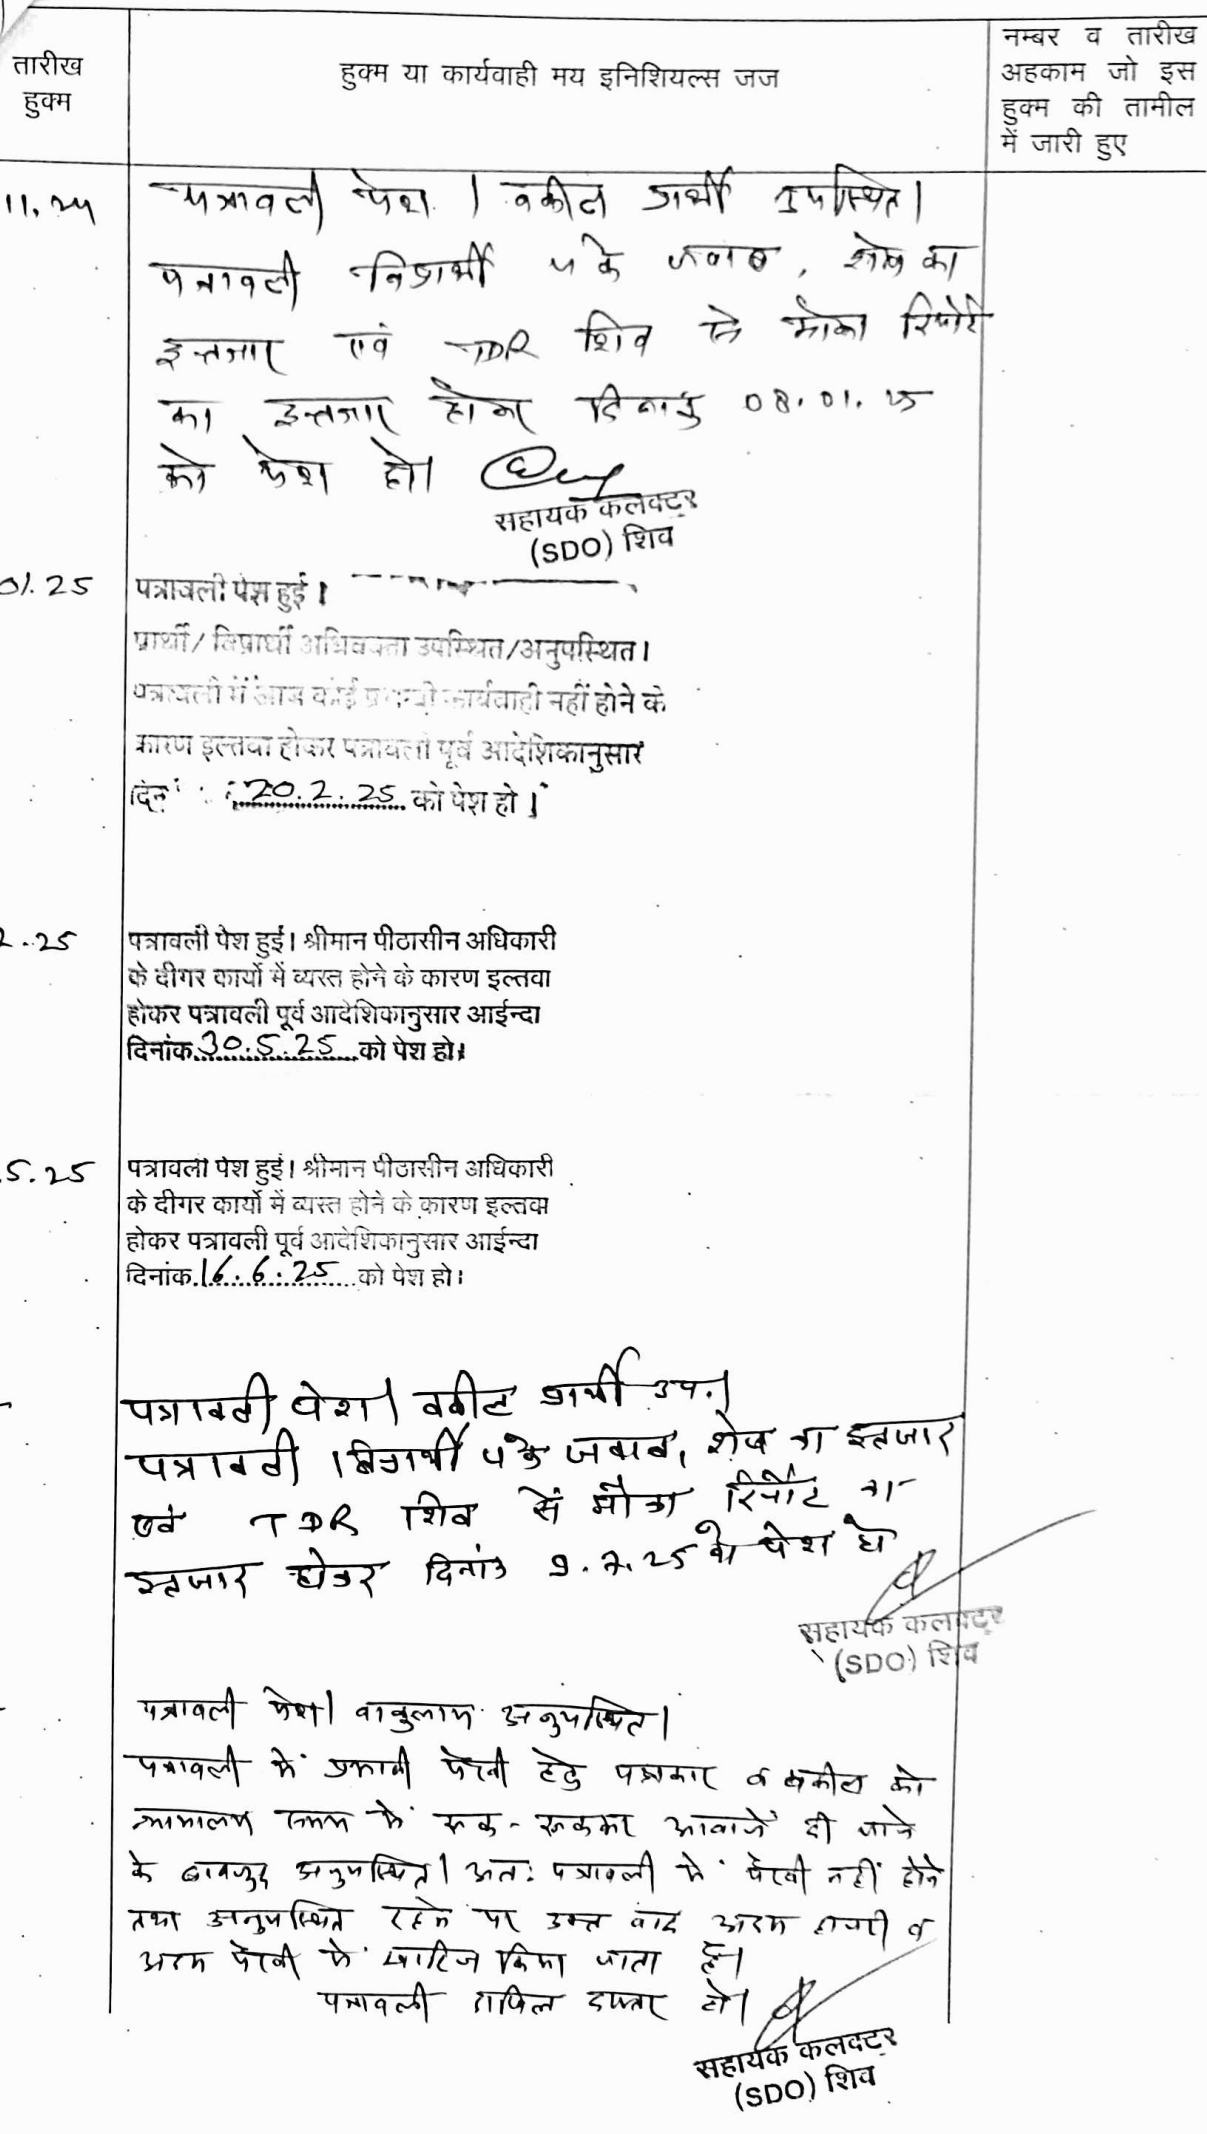 तारीख
हुक्म
हुक्म या कार्यवाही मय इनिशियल्स जज
नम्बर व तारीख
अहकाम जो इस
हुक्म की तामील
में जारी हुए
11.24
पत्रावली पेश । वकील प्रार्थी उपस्थित।
पत्रावली विप्रार्थी के जवाब, शेष का
इन्तजार एवं TDR शिव से मौका रिपोर्ट
का इन्तजार होकर दिनांक 08.01.25
को पेश हो।
सहायक कलक्टर
(SDO) शिव
01.25
पत्रावली पेश हुई ।
प्रार्थी/विप्रार्थी अभिवक्ता उपस्थित/अनुपस्थित।
पत्रावली में आज कोई प्रभावी कार्यवाही नहीं होने के
कारण इल्तवा होकर पत्रावली पूर्व आदेशिकानुसार
20.2.25 को पेश हो ।
2.25
पत्रावली पेश हुई। श्रीमान पीठासीन अधिकारी
के दीगर कार्यो में व्यस्त होने के कारण इल्तवा
होकर पत्रावली पूर्व आदेशिकानुसार आईन्दा
दिनांक 30.5.25 को पेश हो।
5.25
पत्रावली पेश हुई। श्रीमान पीठासीन अधिकारी
के दीगर कार्यो में व्यस्त होने के कारण इल्तवा
होकर पत्रावली पूर्व आदेशिकानुसार आईन्दा
दिनांक 16.6.25 को पेश हो।
पत्रावली पेश। वकील प्रार्थी उप.।
पत्रावली विप्रार्थी के जवाब, शेष का इन्तजार
एवं TDR शिव से मौका रिपोर्ट का
इन्तजार होकर दिनांक 9.7.25 को पेश हो
सहायक कलक्टर
(SDO) शिव
पत्रावली पेश। अनुपस्थित।
पत्रावली में प्रभावी पैरवी हेतु पक्षकार व वकील को
न्यायालय समय में रूक-रूककर आवाजें दी जाने
के बावजूद अनुपस्थित। अतः पत्रावली में पैरवी नहीं होने
तथा अनुपस्थित रहने पर उक्त वाद अदम हाजरी व
अदम पैरवी में खारिज किया जाता है।
पत्रावली दाखिल दफ्तर हो।
सहायक कलक्टर
(SDO) शिव